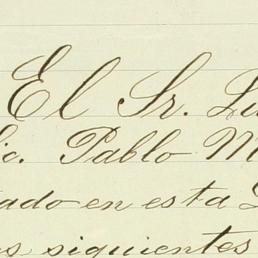 El Sr. Lu
ic. Pablo M
tado en esta
os siguientes